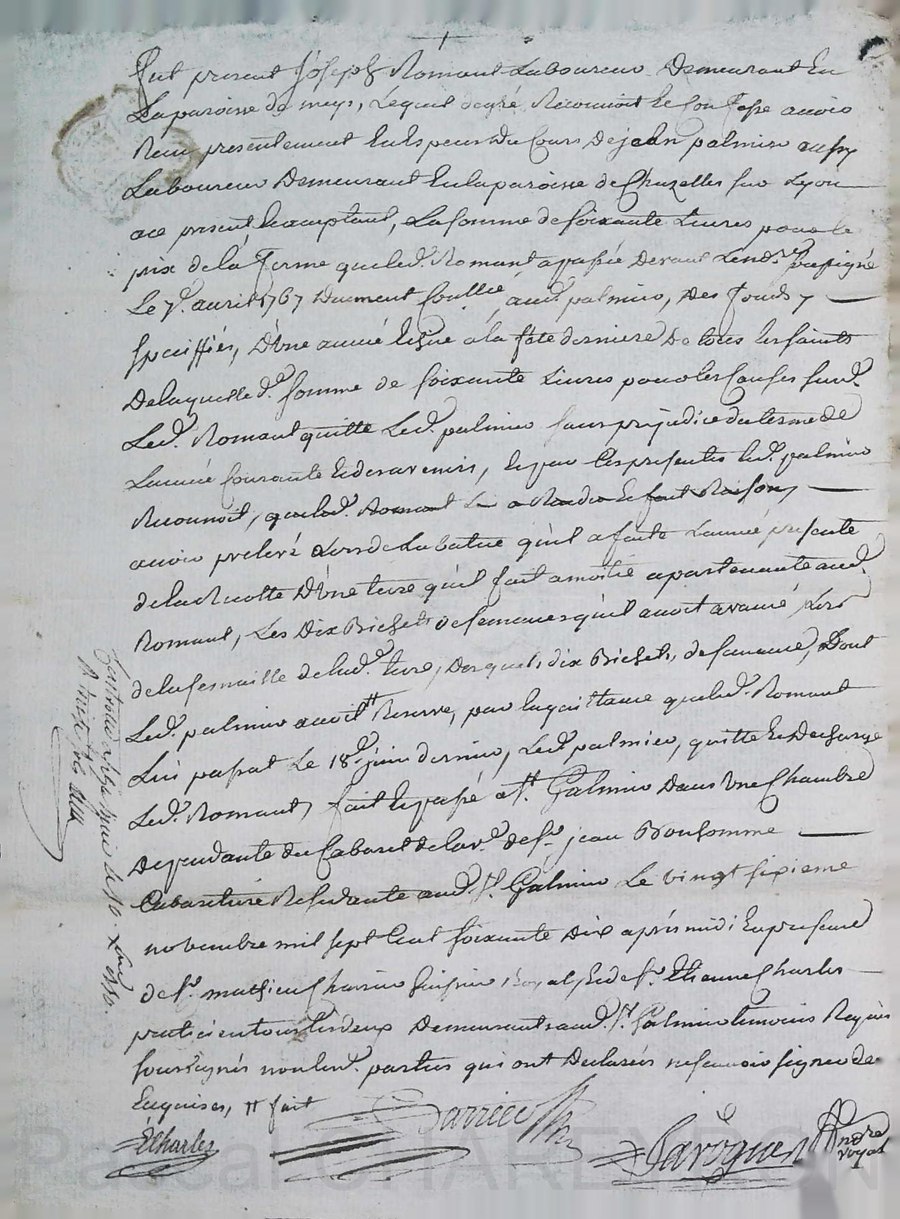 fut present Joseph Romant Laboureur Demeurant En
La paroisse de meys, Lequel de gré Reconnoit Et Confesse avoir
Reçu presentement En Especes Du Cours De jean palmier aussy
Laboureur Demeurant En la paroisse de Chazelles sur Lyon
a ce present Et acceptant, La somme de soixante Livres pour le
prix de la ferme que led. Romant a passée Devant Le nd.re soussigné
Le 7e. avril 1767 Duement Conllé, aud. palmier, Des fonds y
speciffiés, D'une année echue a la fete derniere De tous les saints
De laquelle d.e somme de soixante Livres pour les Causes susd.
Led. Romant quitte Led. palmier sans prejudice du terme de
L'année Courante Et des avenirs, Et par Ces presentes led. palmier
Reconnoit, que led. Romant Lui a Rendu Et fait Raison,
avoir prelevé Lors de La batue qu'il a faite L'année presente
de la Recolte D'une terre qu'il fait a moitié apartenante aud.
Romant, Les Dix Bichets de semances qu'il avoit avancé, Lors
de la semaille de lad. terre, Desquels dix Bichets de semance, Dont
Led. palmier avoit Reserve, par la quittance que led. Romant
Lui passat Le 18e. juin dernier, Led. palmier, quitte Et Decharge
Led. Romant, fait Et passé a St. Galmier Dans Une Chambre
Dependante du Cabaret de la v.e de Sr. jean Bonhomme
Cabaretiere Residante aud. St. Galmier Le vingt sixieme
novembre mil sept Cent soixante Dix après midi En presence
de Sr. mathieu Charrin huissier Royal, Et de Sr. Etienne Charles
praticien tous les deux Demeurants aud. St. Galmier temoins Requis
soussignés non lesd. parties qui ont Declarées ne sçavoir signer de
Enquises, tt fait
ECharles
Laroque
Nore
royal
Pascal CHARENDON